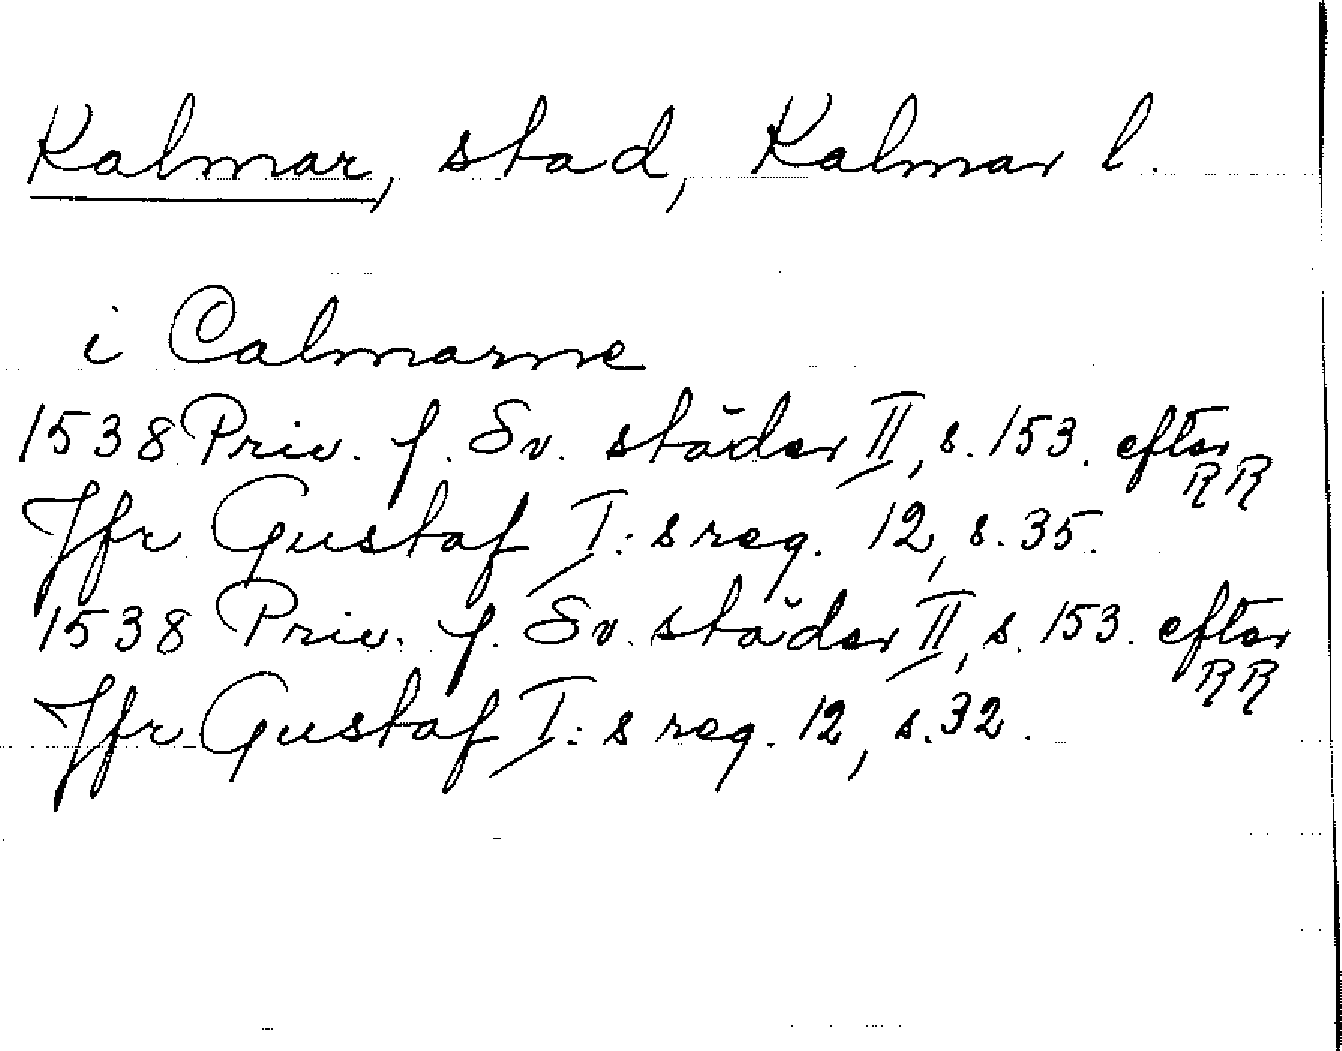 Kalmar, stad, Kalmar l.
i Calmarne
1538 Priv. f. Sv. städer II, s. 153. efter RR
Jfr Gustaf I:s reg. 12, s. 35.
1538 Priv. f. Sv. städer II, s. 153. efter RR
Jfr Gustaf I:s reg. 12, s. 32.